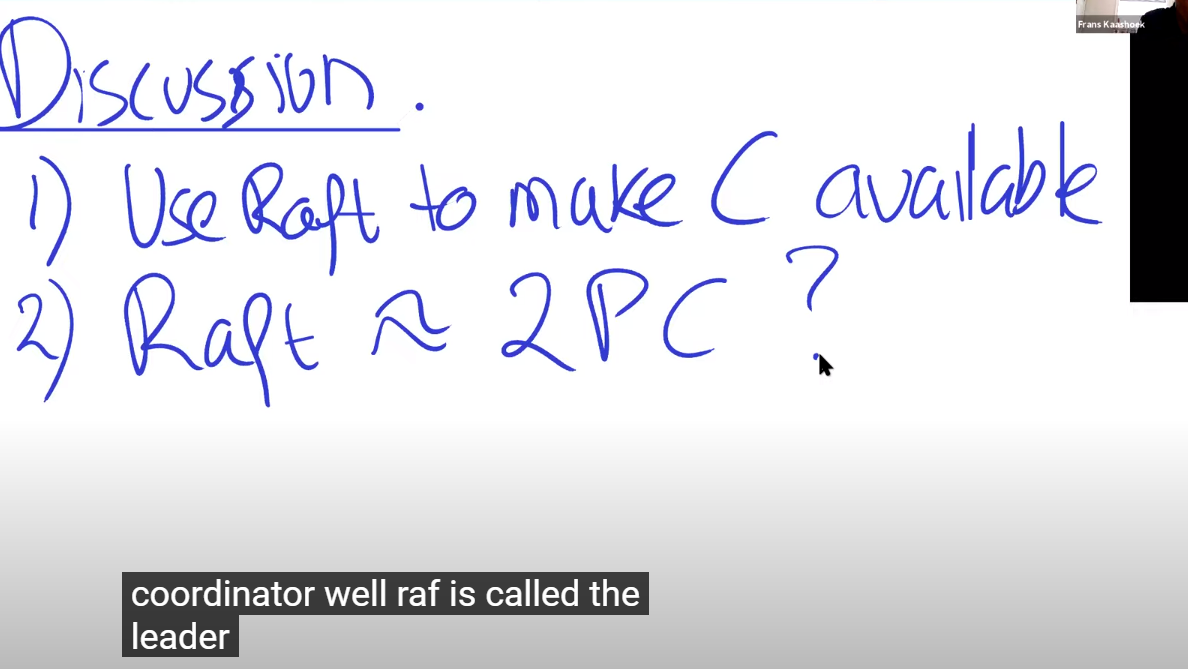 Frans Kaashoek
Discussion.
1) Use Raft to make C available
2) Raft ≈ 2PC ?
coordinator well raf is called the
leader